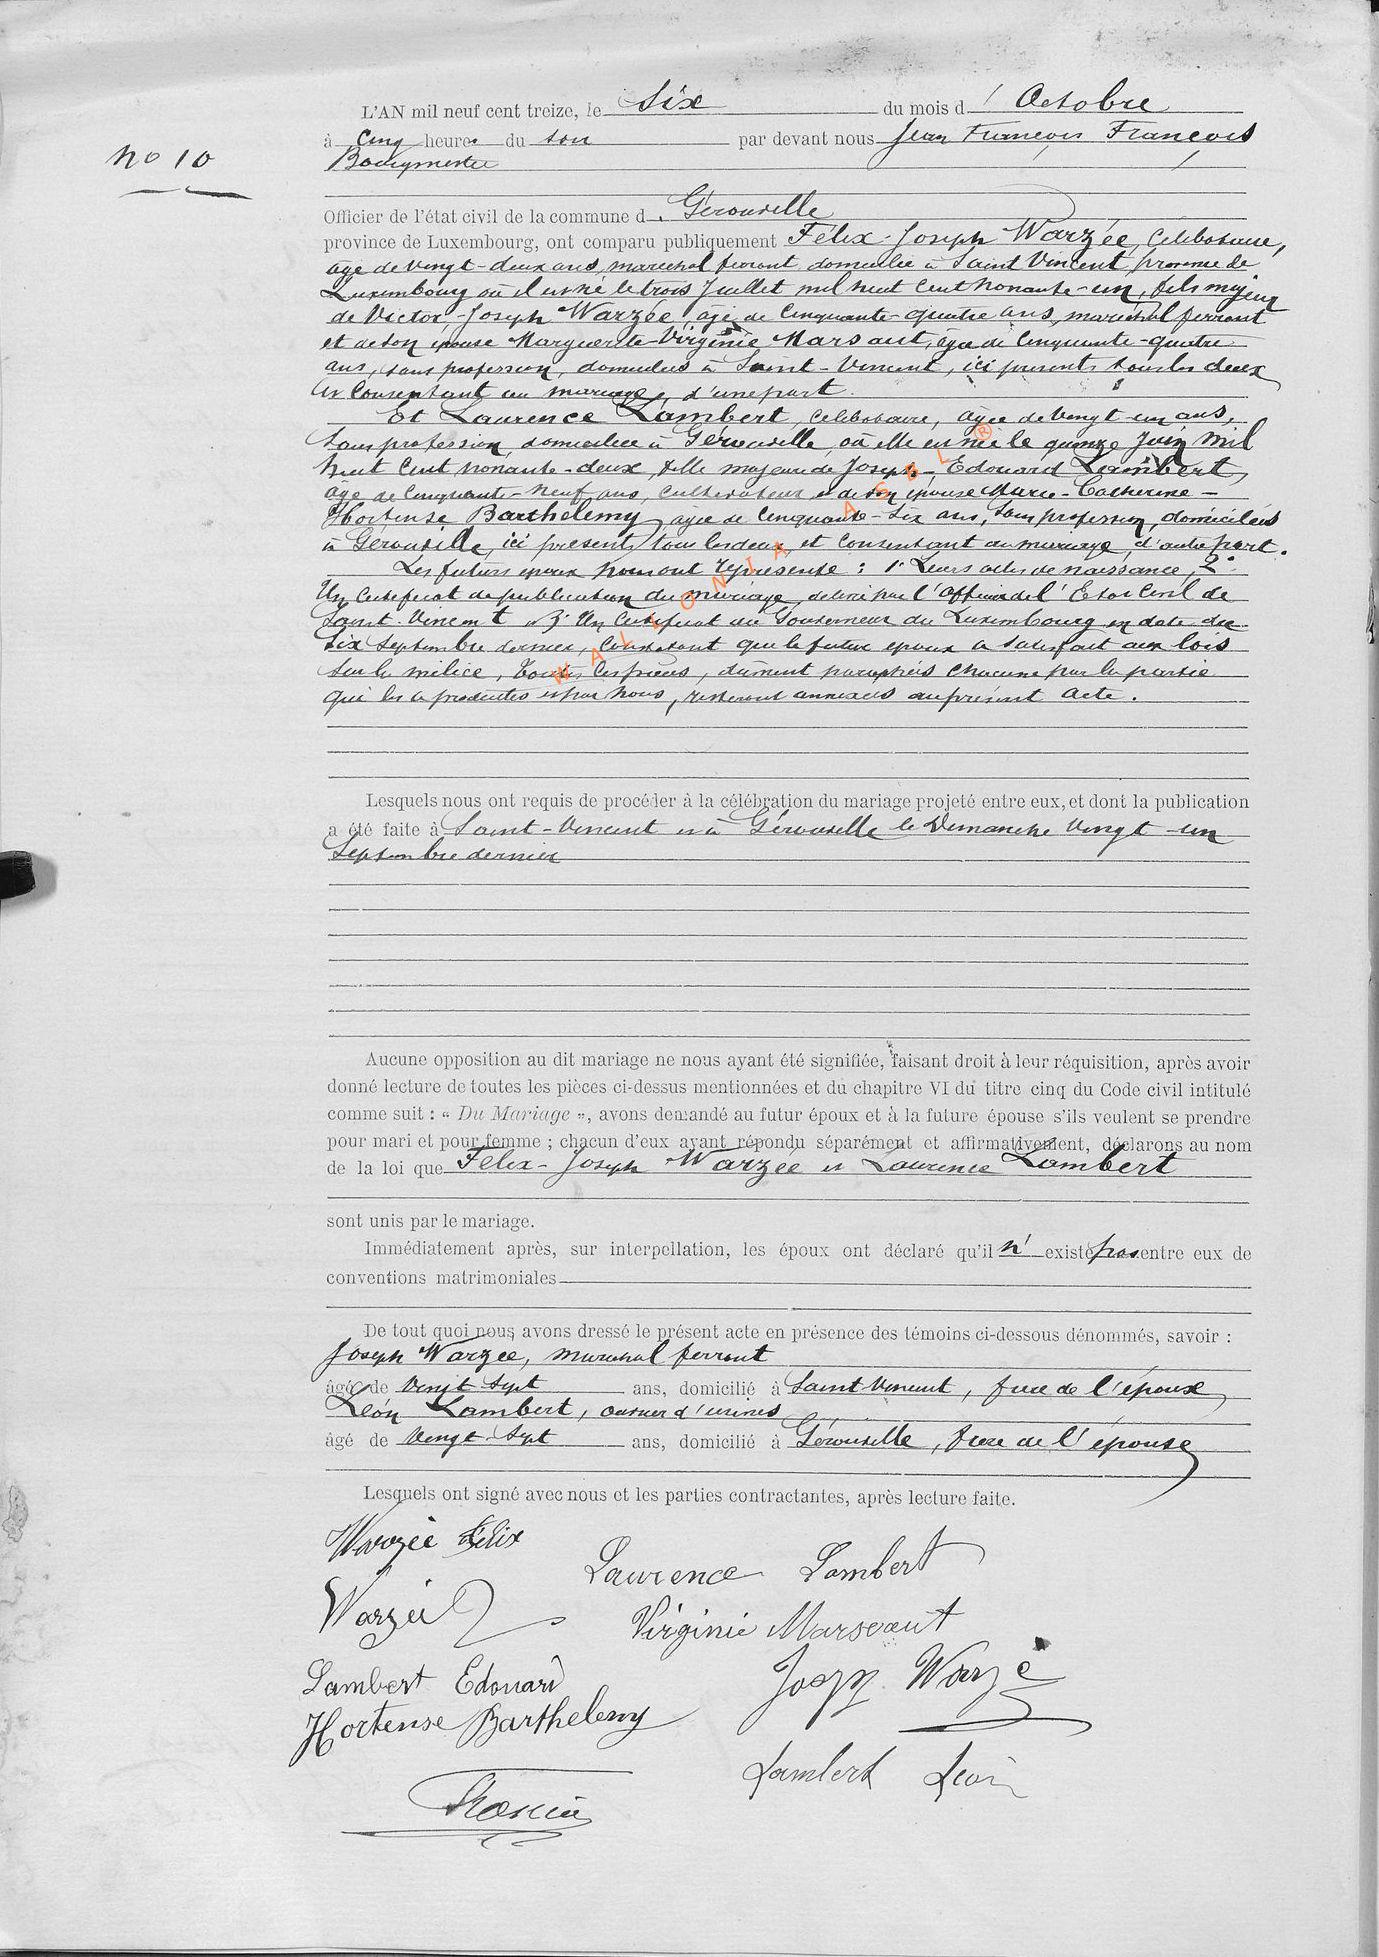 L'AN mil neuf cent treize, le Six du mois d' Octobre
à Cinq heures du soir par devant nous Jean François François
No 10
Bourgmestre
Officier de l'état civil de la commune d. Gérouville
province de Luxembourg, ont comparu publiquement Félix-Joseph Warzée, Célibataire,
âgé de vingt-deux ans, maréchal ferrant domicilié à Saint Vincent, province de
Luxembourg où il est né le trois Juillet mil huit cent nonante-un, fils majeur
de Victor-Joseph Warzée âgé de Cinquante-quatre ans, maréchal ferrant
et de son épouse Marguerite-Virginie Marsaut, âgée de Cinquante-quatre
ans, sans profession, domiciliés à Saint-Vincent, ici présents tous les deux
et Consentant au mariage, d'une part.
Et Laurence Lambert, célibataire, âgée de vingt-un ans,
sans profession, domiciliée à Gérouville, où elle est née le quinze Juin mil
huit cent nonante-deux, fille majeure de Joseph-Edouard Lambert,
âgé de Cinquante-neuf ans, cultivateur et de son épouse Marie-Catherine-
Hortense Barthélemy, âgée de Cinquante-Six ans, Sans profession, domiciliés
à Gérouville, ici présents tous les deux et Consentant au mariage, d'autre part.
Les futurs époux nous ont représenté : 1° Leurs actes de naissance, 2°
Un Certificat de publication du mariage, délivré par l'Officier de l'Etat Civil de
Saint-Vincent et 3° Un Certificat du Gouverneur du Luxembourg en date du
Six Septembre dernier, Constatant que le futur époux a satisfait aux lois
sur la milice, toutes ces pièces, dûment paraphées chacune par la partie
qui les a produites et par nous, resteront annexées au présent acte.
WALLONIA ASBL ®
Lesquels nous ont requis de procéder à la célébration du mariage projeté entre eux, et dont la publication
a été faite à Saint-Vincent et à Gérouville le Dimanche Vingt-un
Septembre dernier
Aucune opposition au dit mariage ne nous ayant été signifiée, faisant droit à leur réquisition, après avoir
donné lecture de toutes les pièces ci-dessus mentionnées et du chapitre VI du titre cinq du Code civil intitulé
comme suit : « Du Mariage », avons demandé au futur époux et à la future épouse s'ils veulent se prendre
pour mari et pour femme ; chacun d'eux ayant répondu séparément et affirmativement, déclarons au nom
de la loi que Félix-Joseph Warzée et Laurence Lambert
sont unis par le mariage.
Immédiatement après, sur interpellation, les époux ont déclaré qu'il n' existe pas entre eux de
conventions matrimoniales
De tout quoi nous avons dressé le présent acte en présence des témoins ci-dessous dénommés, savoir :
Joseph Warzée, maréchal ferrant
âgé de Vingt Sept ans, domicilié à Saint Vincent, frère de l'époux
Léon Lambert, ouvrier d'usines
âgé de Vingt-Sept ans, domicilié à Gérouville, frère de l'épouse
Lesquels ont signé avec nous et les parties contractantes, après lecture faite.
Warzée Félix
Laurence Lambert
Warzée
Virginie Marseaut
Lambert Edouard
Joseph Warzé
Hortense Barthelemy
Lambert Léon